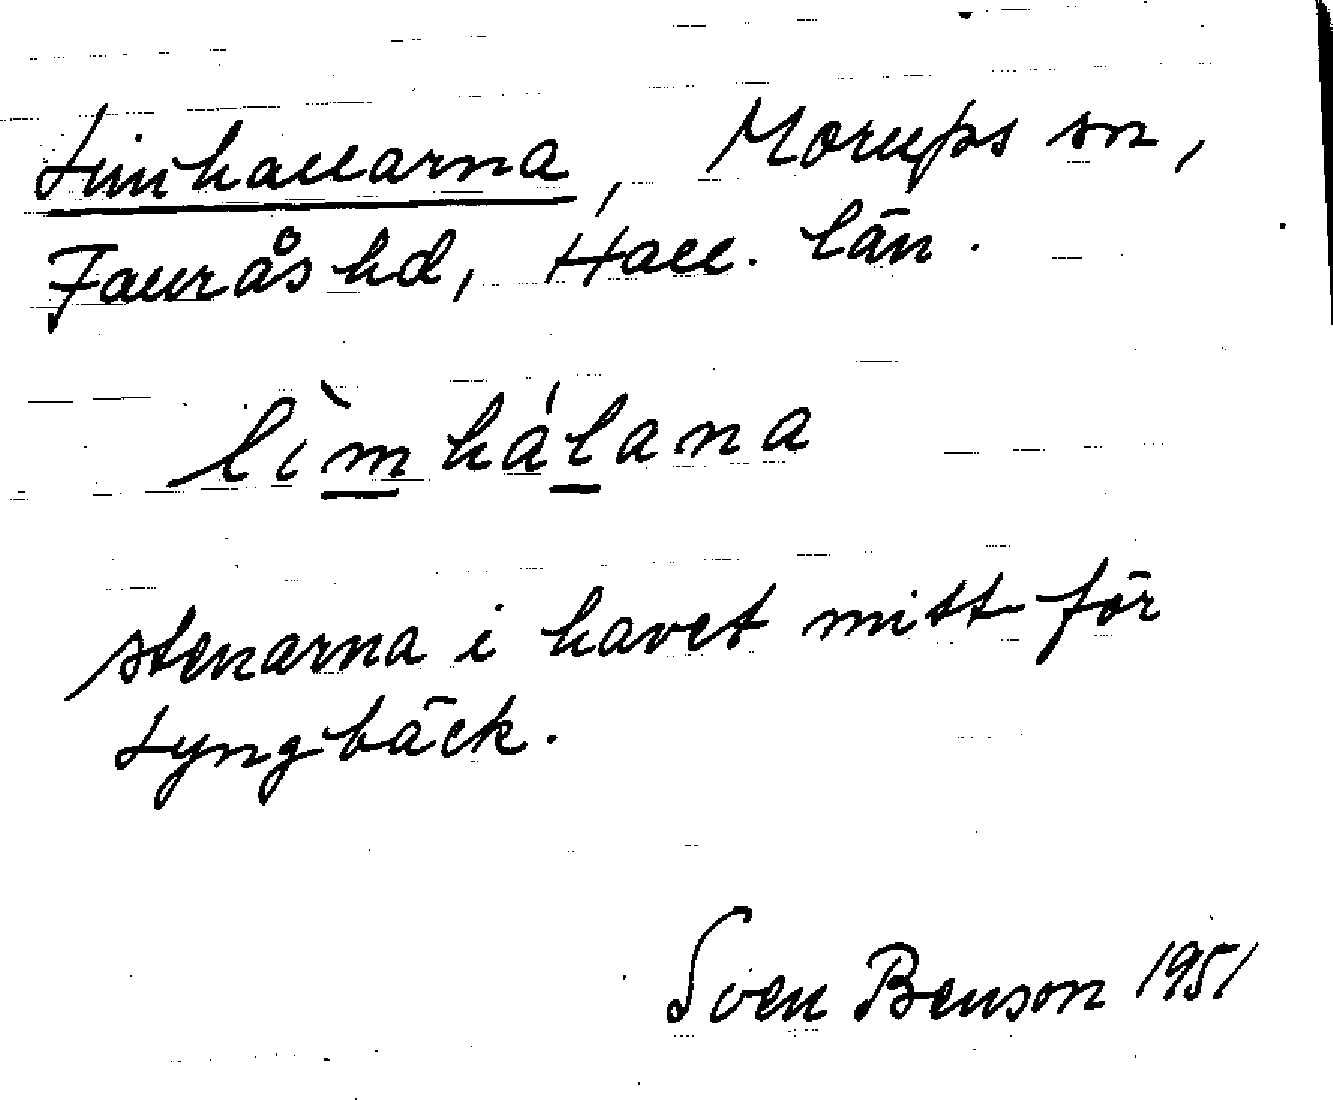 Limhallarna, Morups sn,
Faurås hd, Hall. län.
lìmhálana
stenarna i havet mitt för
Lyngbäck.
Sven Benson 1951